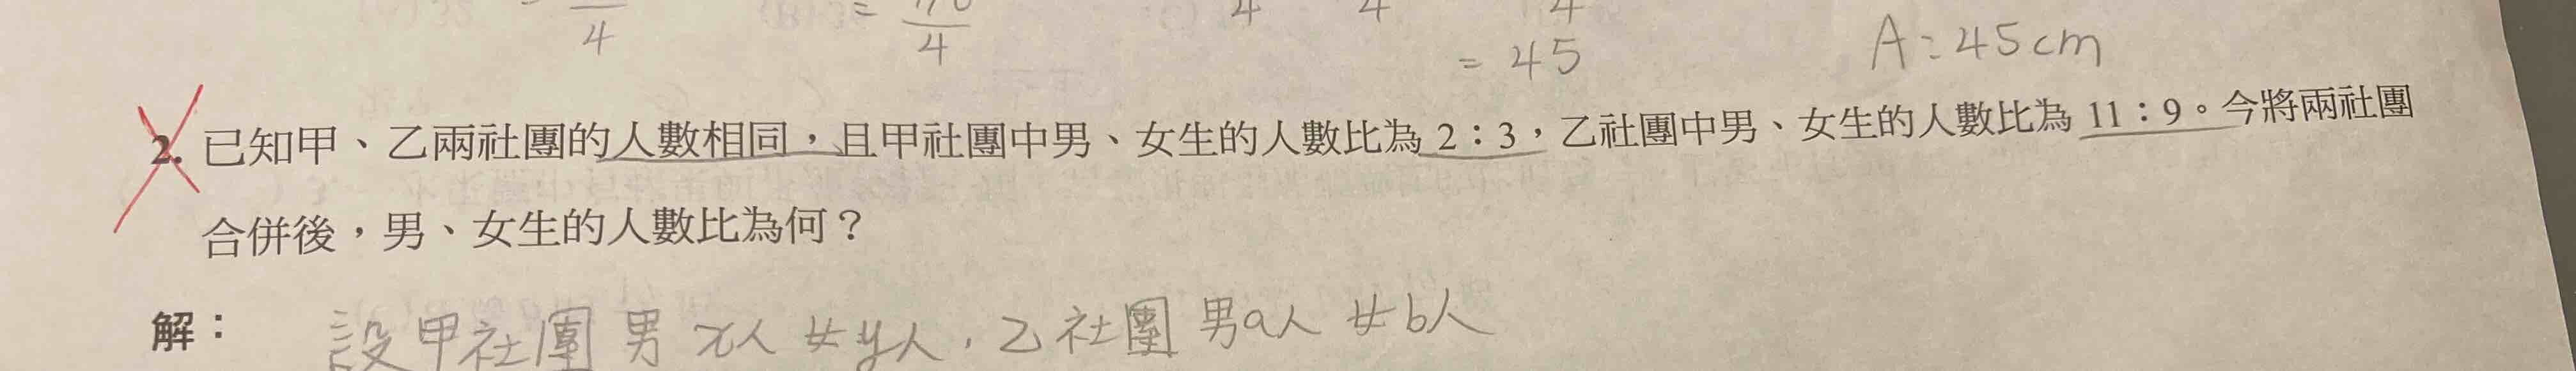 4
=
4
4 4 4
= 45
A = 45cm
2. 已知甲、乙兩社團的人數相同，且甲社團中男、女生的人數比為 2：3，乙社團中男、女生的人數比為 11：9。今將兩社團
合併後，男、女生的人數比為何？
解：
設甲社團 男 x人 女y人，乙社團 男a人 女b人